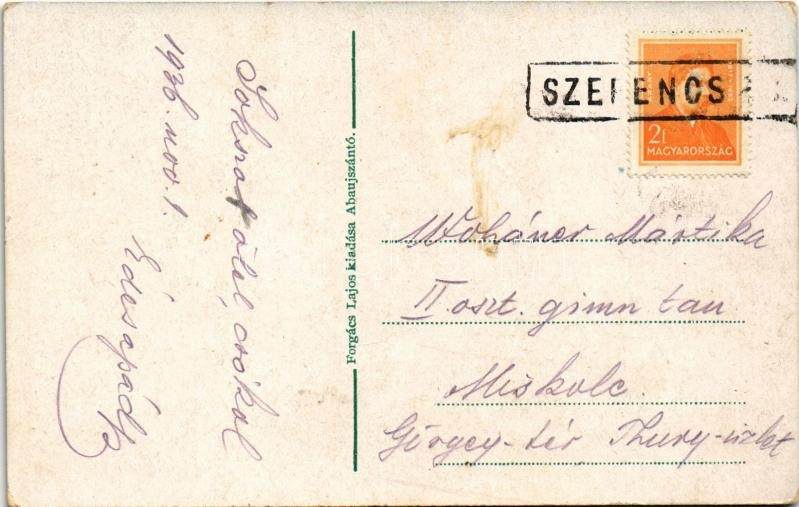 1936. nov. 1.
Sokszor ölel, csókol
Édesapád
Forgács Lajos kiadása Abaujszántó.
SZERENCS
2f
MAGYARORSZÁG
Woháner Mártika
II. oszt. gimn tan
Miskolc.
Görgey-tér Thury-üzlet